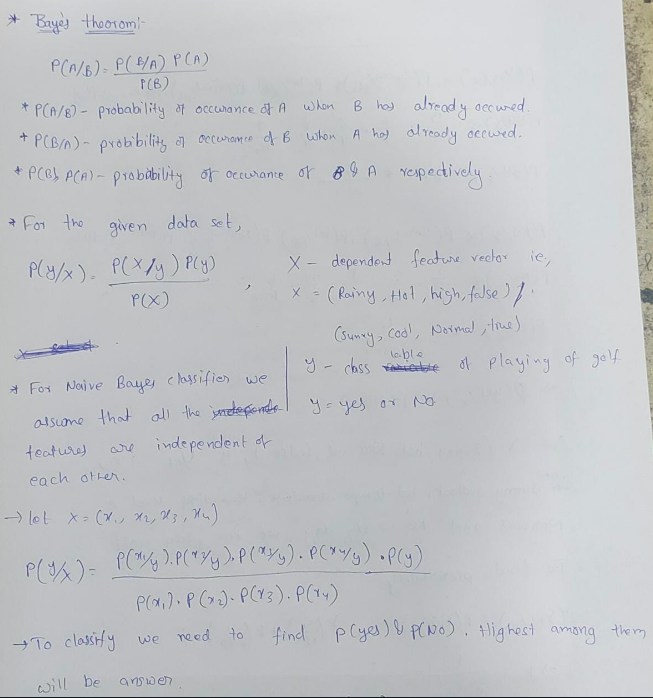 * Baye's theorom:-
P(A/B) = P(B/A) P(A)
P(B)
* P(A/B) - probability of occurance of A when B has already occured.
* P(B/A) - probibility of occurance of B when A has already occured.
* P(B), P(A) - probability of occurance of B & A respectively.
* For the given data set,
P(y/x) = P(X/y) P(y)
P(X)
,
X - dependent feature vector ie,
X = (Rainy, Hot, high, false) /.
(Sunny, Cool, Normal, true)
y - class lable of playing of golf
y = yes or No
* For Naive Bayes classifier we
assume that all the
features are independent of
each other.
→ let X = (x1, x2, x3, x4)
P(y/x) = P(x1/y). P(x2/y). P(x3/y). P(x4/y) . P(y)
P(x1). P(x2). P(x3). P(x4)
→ To classify we need to find P(yes) & P(No). Highest among them
will be answer.